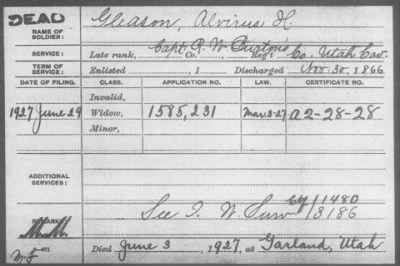 DEAD
NAME OF SOLDIER: Gleason, Alvirus H.
SERVICE: Capt. R. W. Burtons Co. Utah Cav.
Late rank, Co. Reg't
TERM OF SERVICE: Enlisted , 1 Discharged Nov. 30, 1866
DATE OF FILING. CLASS. APPLICATION NO. LAW. CERTIFICATE NO.
Invalid,
1927 June 29 Widow, 1585,231 Mar 3-27 A2-28-28
Minor,
ADDITIONAL SERVICES:
See I. W. Surv 11480
13186
REMARKS:
Died June 3, 1927, at Garland, Utah